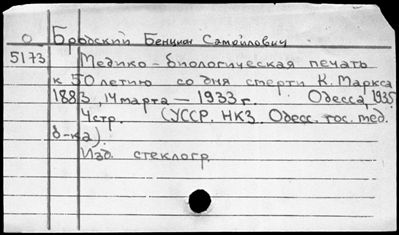 О Бродский Бенциан Самойлович
5173 Медико-биологическая печать
к 50летию со дня смерти К. Маркса
1883, 14 марта — 1933 г. Одесса, 1935
4 стр. (УССР. НКЗ. Одесс. гос. мед.
б-ка).
Изд. стеклогр.